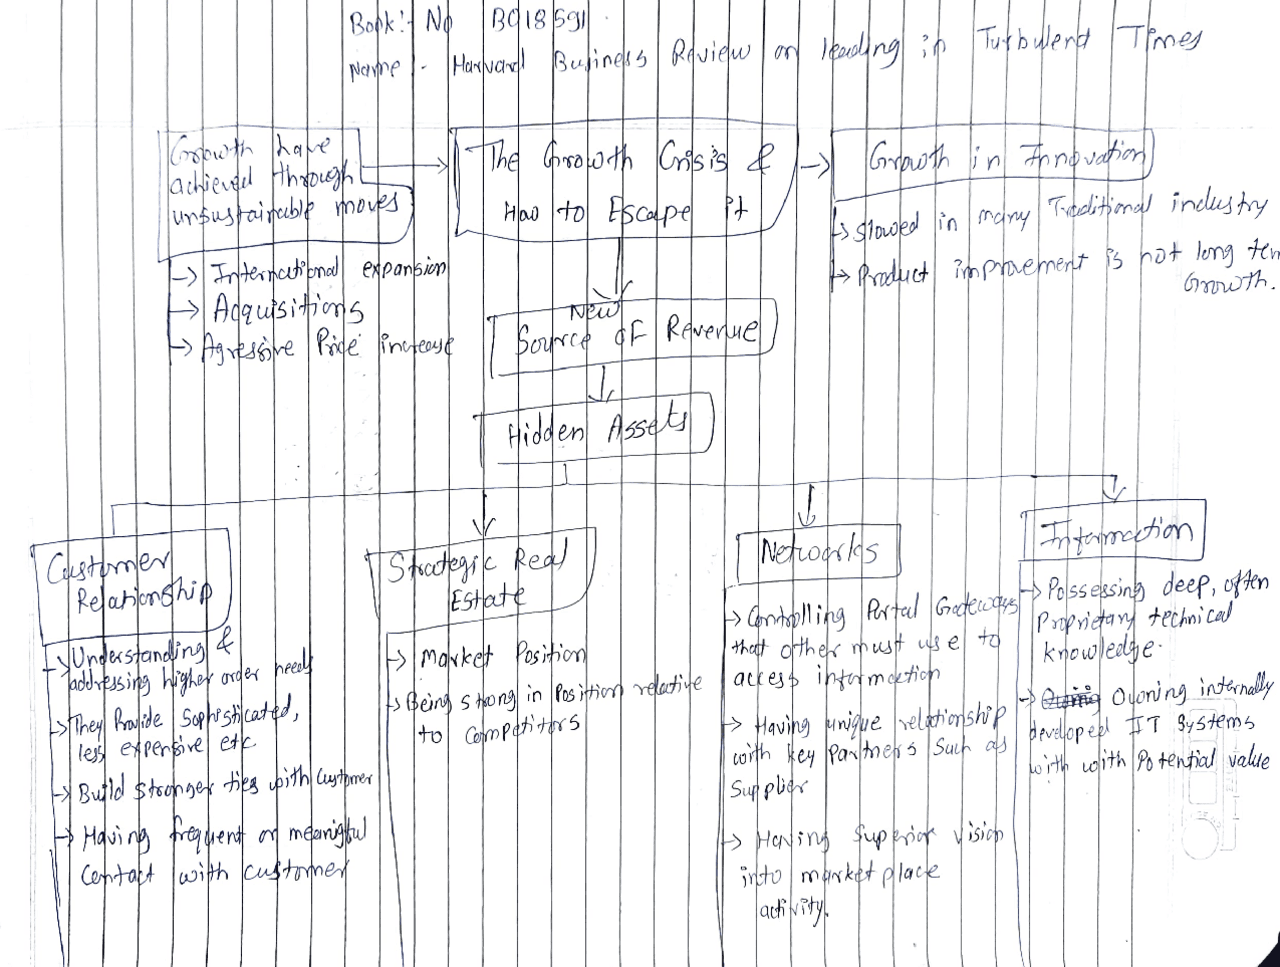 Book:- No BC18591
Name :- Harvard Business Review on leading in Turbulend Times
Growth have
achieved through
unsustainable moves
-> International expansion
-> Acquisitions
-> Agressive Price increase
The Growth Crisis &
How to Escape it
Growth in Innovation
-> Slowed in many Traditional industry
-> Product improvement is not long ter
Growth.
New
Source of Revenue
Hidden Assets
Customer
Relationship
-> Understanding &
addressing higher order needs
-> They Provide Sophisticated,
less expensive etc
-> Build stronger ties with customer
-> Having frequent or meanigful
Contact with customer
Strategic Real
Estate
-> Market Position
-> Being strong in Position relative
to Competitors
Networks
-> Controlling Portal Gateways
that other must use to
access information
-> Having unique relationship
with key Partners Such as
Supplier
-> Having Superior Vision
into market place
activity.
Information
-> Possessing deep, often
Proprietary technical
knowledge.
-> Owning internally
developed IT Systems
with with Potential value